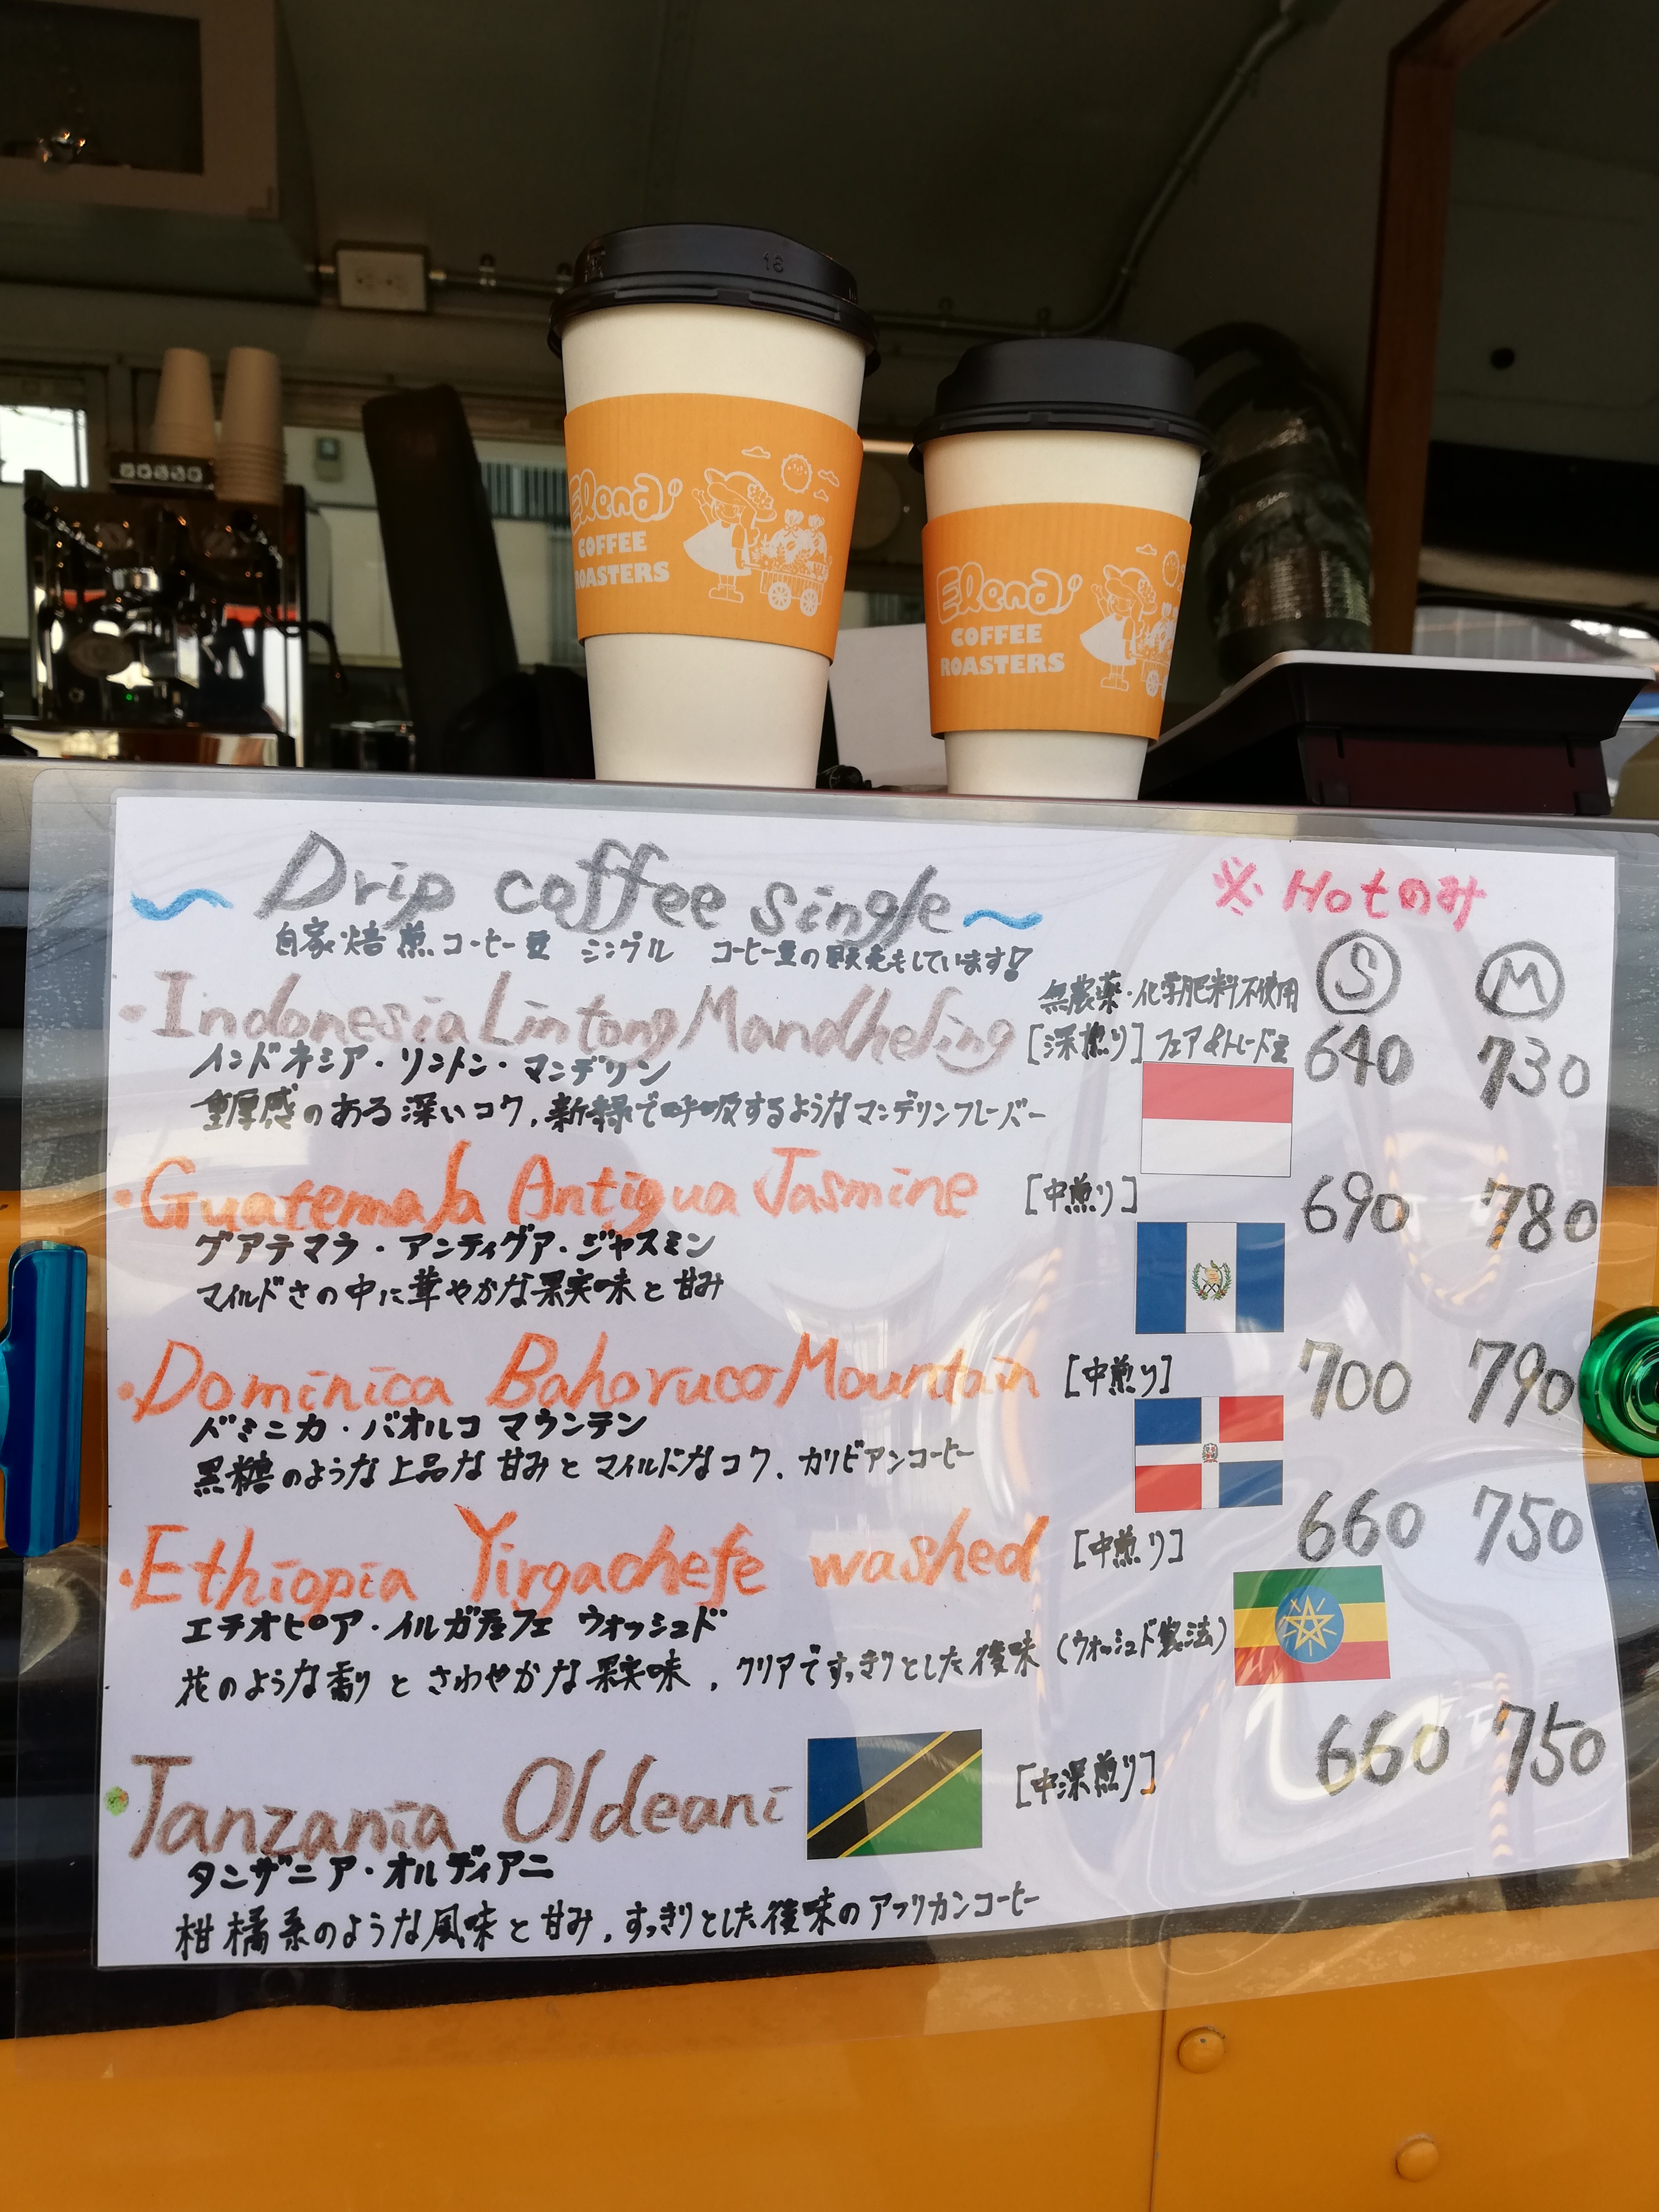 16
Elena
COFFEE
ROASTERS
Elena
COFFEE
ROASTERS
~ Drip coffee single ~ ※ Hotのみ
自家焙煎コーヒー豆 シングル コーヒー豆の販売もしています!
S M
・Indonesia Lintong Mandheling 無農薬・化学肥料不使用
[深煎り] フェア&トレード豆 640 730
インドネシア・リントン・マンデリン
重厚感のある深いコク、新緑で呼吸するようなマンデリンフレーバー
・Guatemala Antigua Jasmine [中煎り] 690 780
グアテマラ・アンティグア・ジャスミン
マイルドさの中に華やかな果実味と甘み
・Dominica Bahoruco Mountain [中煎り] 700 790
ドミニカ・バオルコ マウンテン
黒糖のような上品な甘みとマイルドなコク、カリビアンコーヒー
・Ethiopia Yirgachefe washed [中煎り] 660 750
エチオピア・イルガチェフェ ウォッシュド
花のような香りとさわやかな果実味、クリアですっきりとした後味(ウォッシュド製法)
・Tanzania Oldeani [中深煎り] 660 750
タンザニア・オルディアニ
柑橘系のような風味と甘み、すっきりとした後味のアフリカンコーヒー